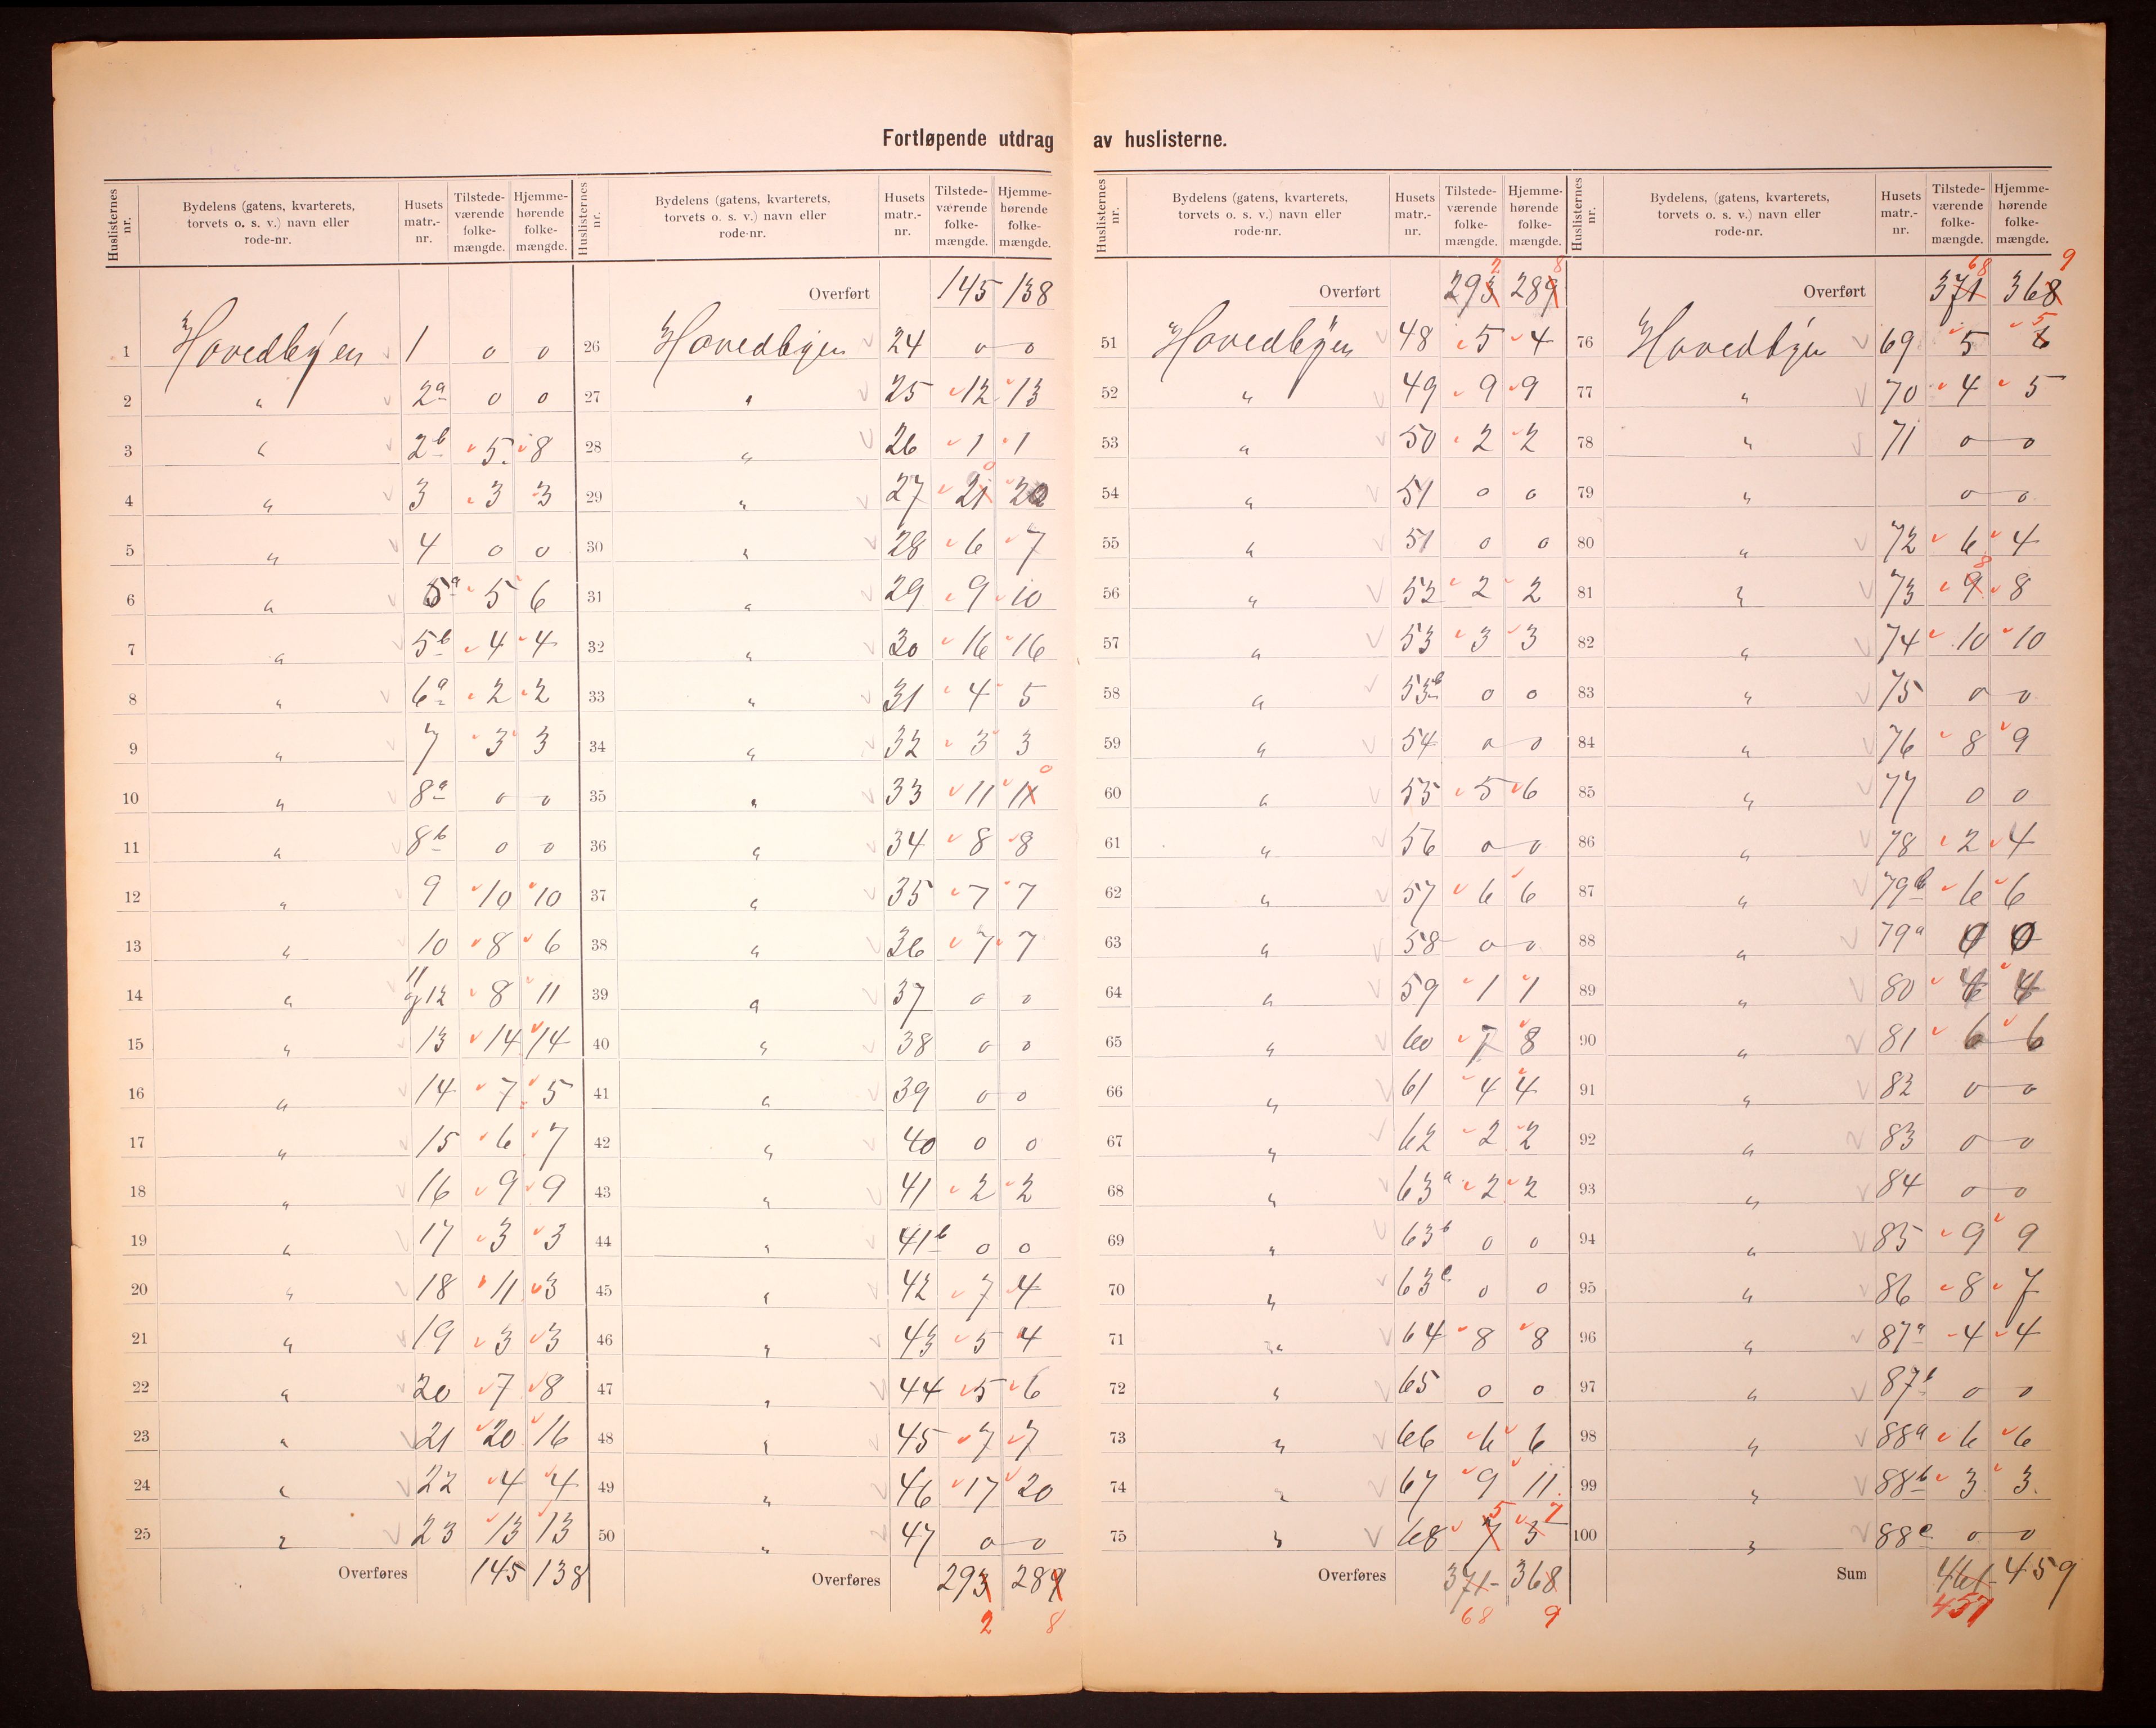 Fortløpende utdrag av huslisterne.
Huslisternes nr. | Bydelens (gatens, kvarterets, torvets o. s. v.) navn eller rode-nr. | Husets matr.-nr. | Tilstedeværende folkemængde. | Hjemmehørende folkemængde.
1 Hovedbyen 1 0 0
2 " 2a 0 0
3 " 2b 5 8
4 " 3 3 3
5 " 4 0 0
6 " 5a 5 6
7 " 5b 4 4
8 " 6a 2 2
9 " 7 3 3
10 " 8a 0 0
11 " 8b 0 0
12 " 9 10 10
13 " 10 8 6
14 " 11 og 12 8 11
15 " 13 14 14
16 " 14 7 5
17 " 15 6 7
18 " 16 9 9
19 " 17 3 3
20 " 18 11 3
21 " 19 3 3
22 " 20 7 8
23 " 21 20 16
24 " 22 4 4
25 " 23 13 13
Overføres 145 138
Huslisternes nr. | Bydelens (gatens, kvarterets, torvets o. s. v.) navn eller rode-nr. | Husets matr.-nr. | Tilstedeværende folkemængde. | Hjemmehørende folkemængde.
Overført 145 138
26 Hovedbyen 24 0 0
27 " 25 12 13
28 " 26 1 1
29 " 27 21 0 20
30 " 28 6 7
31 " 29 9 10
32 " 30 16 16
33 " 31 4 5
34 " 32 3 3
35 " 33 11 11 0
36 " 34 8 8
37 " 35 7 7
38 " 36 7 7
39 " 37 0 0
40 " 38 0 0
41 " 39 0 0
42 " 40 0 0
43 " 41 2 2
44 " 41b 0 0
45 " 42 7 4
46 " 43 5 4
47 " 44 5 6
48 " 45 7 7
49 " 46 17 20
50 " 47 0 0
Overføres 293 289
2 8
Huslisternes nr. | Bydelens (gatens, kvarterets, torvets o. s. v.) navn eller rode-nr. | Husets matr.-nr. | Tilstedeværende folkemængde. | Hjemmehørende folkemængde.
2 8
Overført 293 289
51 Hovedbyen 48 5 4
52 " 49 9 9
53 " 50 2 2
54 " 51 0 0
55 " 51 0 0
56 " 52 2 2
57 " 53 3 3
58 " 53b 0 0
59 " 54 0 0
60 " 55 5 6
61 " 56 0 0
62 " 57 6 6
63 " 58 0 0
64 " 59 1 1
65 " 60 7 8
66 " 61 4 4
67 " 62 2 2
68 " 63a 2 2
69 " 63b 0 0
70 " 63c 0 0
71 " 64 8 8
72 " 65 0 0
73 " 66 6 6
74 " 67 9 11
75 " 68 7 5 5 7
Overføres 371 368
68 9
Huslisternes nr. | Bydelens, (gatens, kvarterets, torvets o. s. v.) navn eller rode-nr. | Husets matr.-nr. | Tilstedeværende folkemængde. | Hjemmehørende folkemængde.
68 9
Overført 371 368
76 Hovedbyen 69 5 6 5
77 " 70 4 5
78 " 71 0 0
79 " 0 0
80 " 72 6 4
81 " 73 9 8 8
82 " 74 10 10
83 " 75 0 0
84 " 76 8 9
85 " 77 0 0
86 " 78 2 4
87 " 79b 6 6
88 " 79a 0 0
89 " 80 4 4
90 " 81 6 6
91 " 82 0 0
92 " 83 0 0
93 " 84 0 0
94 " 85 9 9
95 " 86 8 7
96 " 87a 4 4
97 " 87b 0 0
98 " 88a 6 6
99 " 88b 3 3
100 " 88c 0 0
Sum 461 459
457